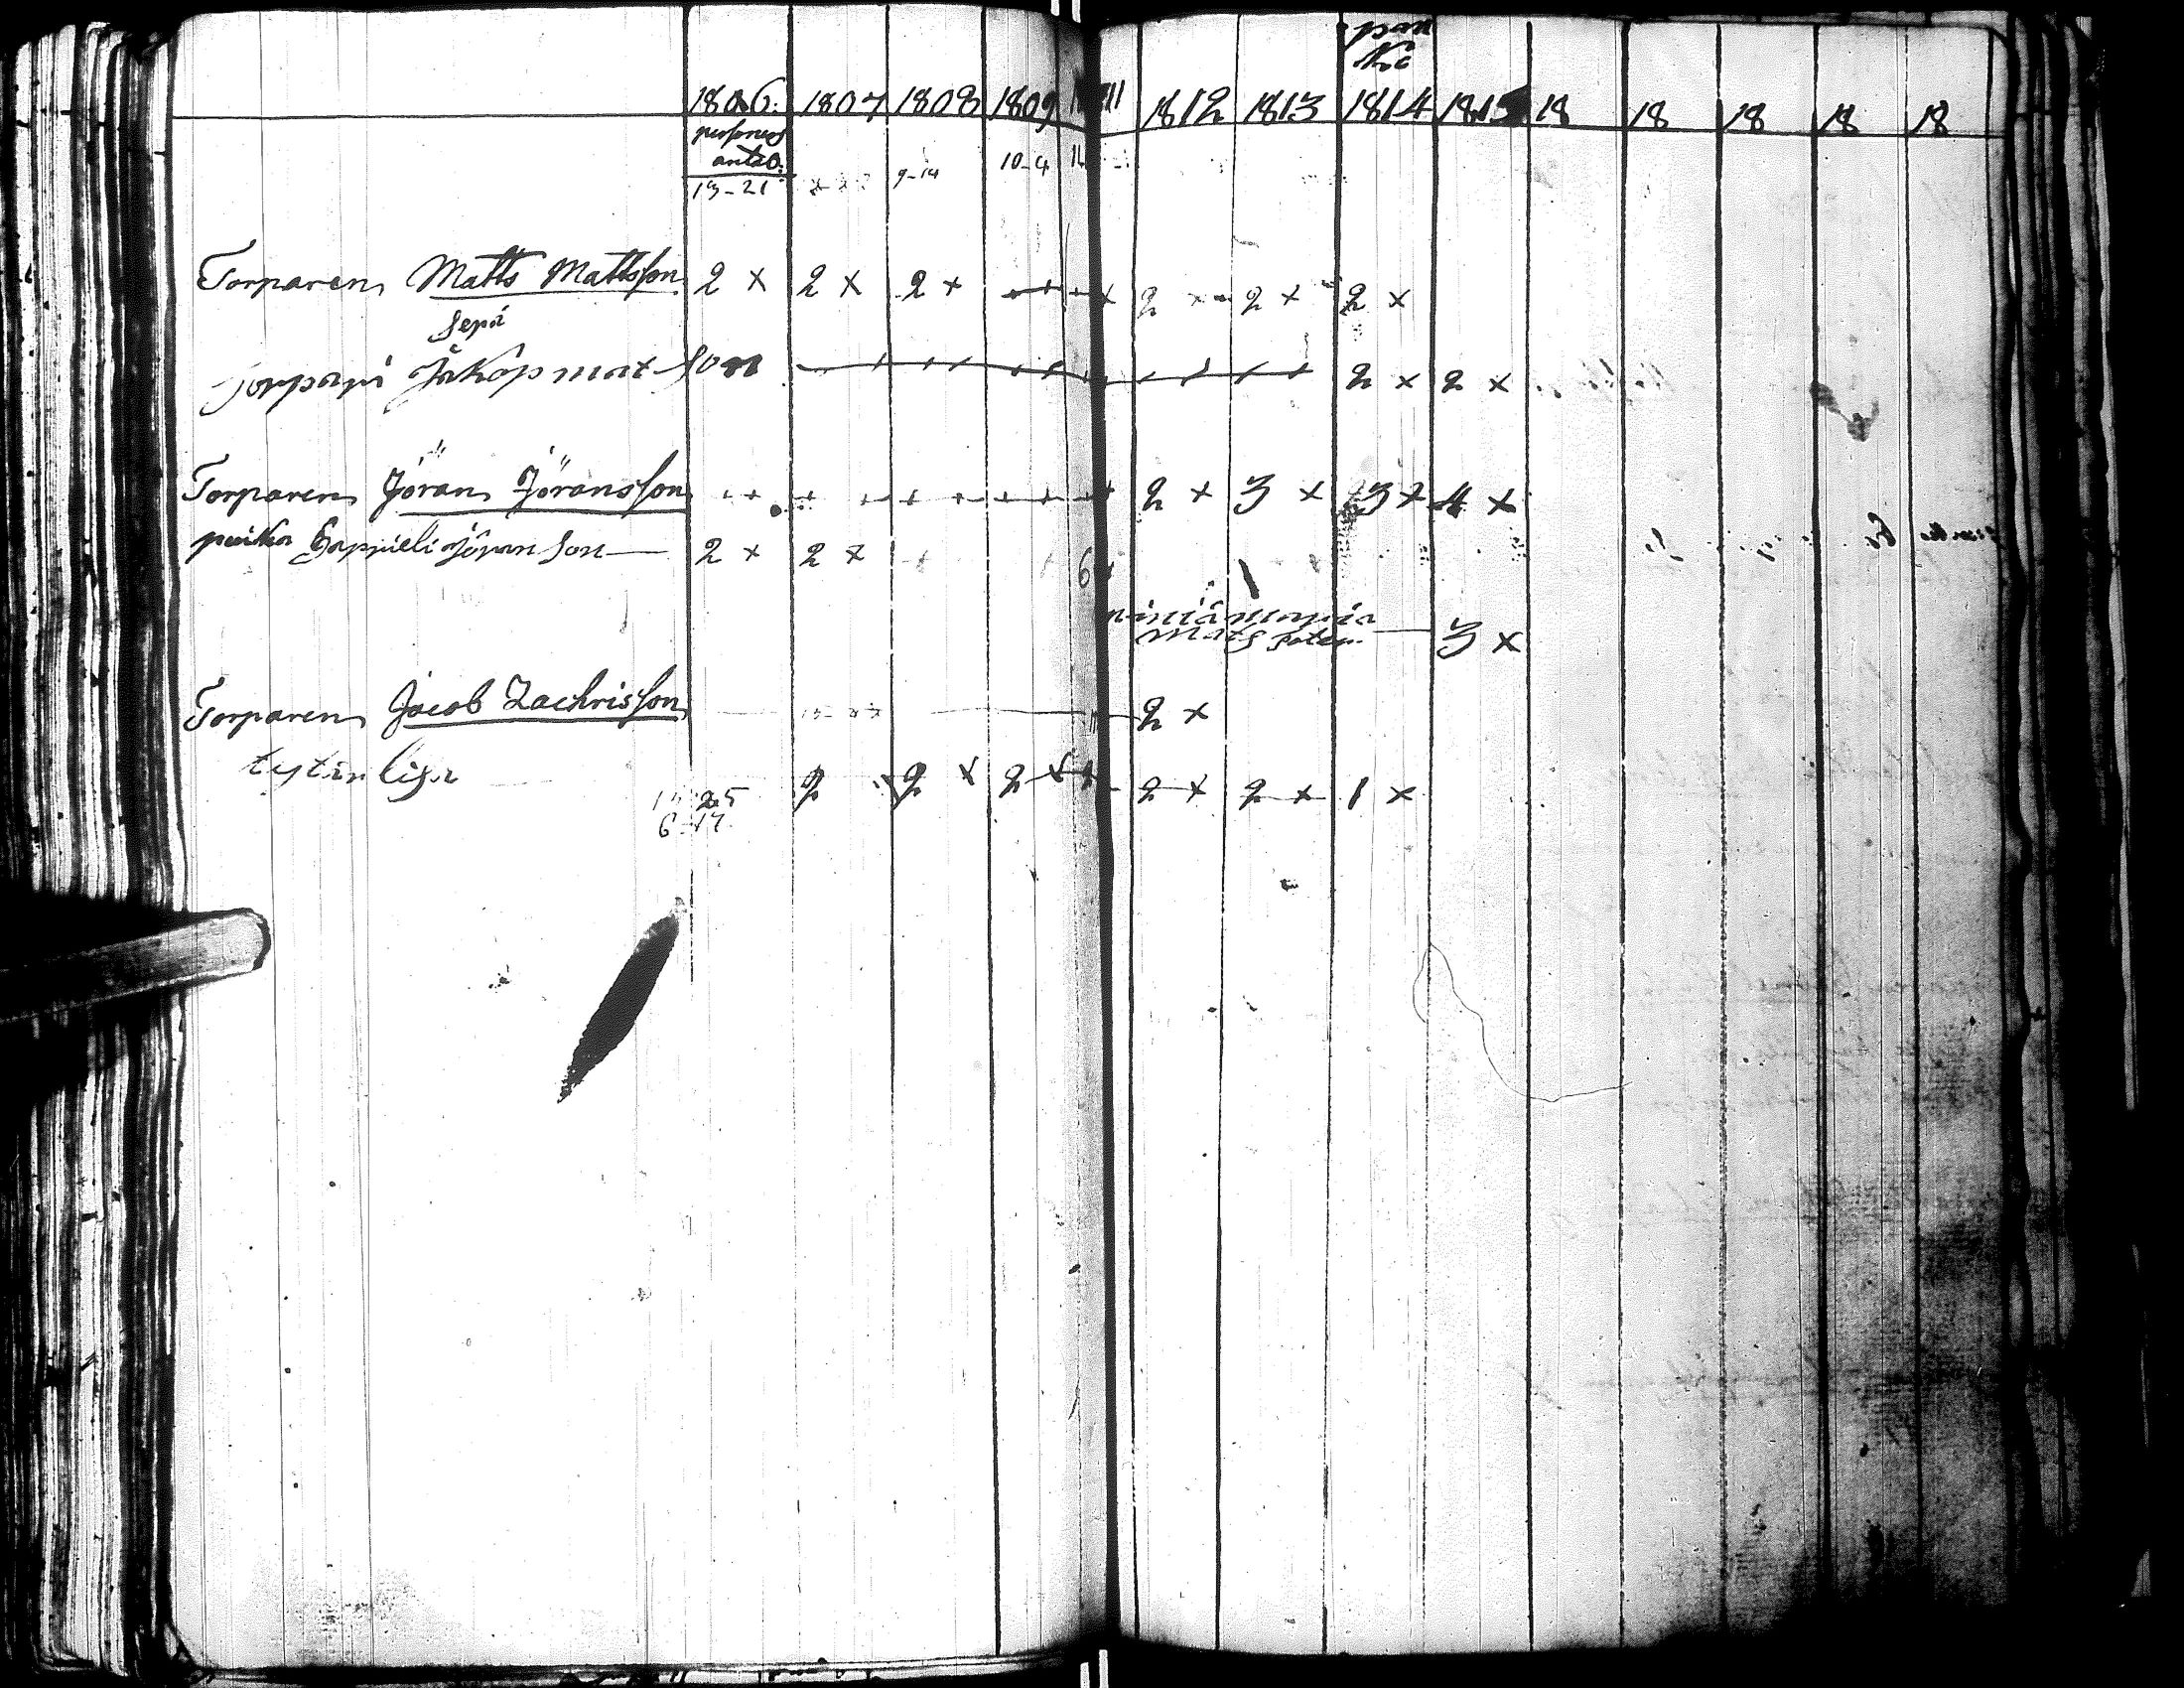 pan
No
1806. 1807 1808 1809 11 1812 1813 1814 1815 18 18 18 18 18
personers
antal.
13-21 9-14 10-4
Torparen Matts Mattsson 2 x 2 x 2 x 2 x 2 x 2 x
sepä
torpari Jakop mat son 2 x 2 x
Torparen Jöran Jöransson 2 x 3 x 3 x 4 x
poika Gaprieli jöran son 2 x 2 x 6
miniä maria
mats toter 3 x
Torparen Jacob Zachrisson 2 x
tytär lisa 2 2 x 2 x 2 x 2 x 1 x
25
6-17